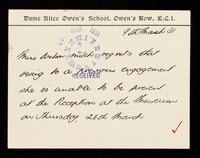 Dame Alice Owen's School, Owen's Row, E.C.1.
9th March 31
Miss much regrets that
owing to a previous engagement
she is unable to be present
at the Reception at the Museum
on Thursday 26th March
RECEIVED